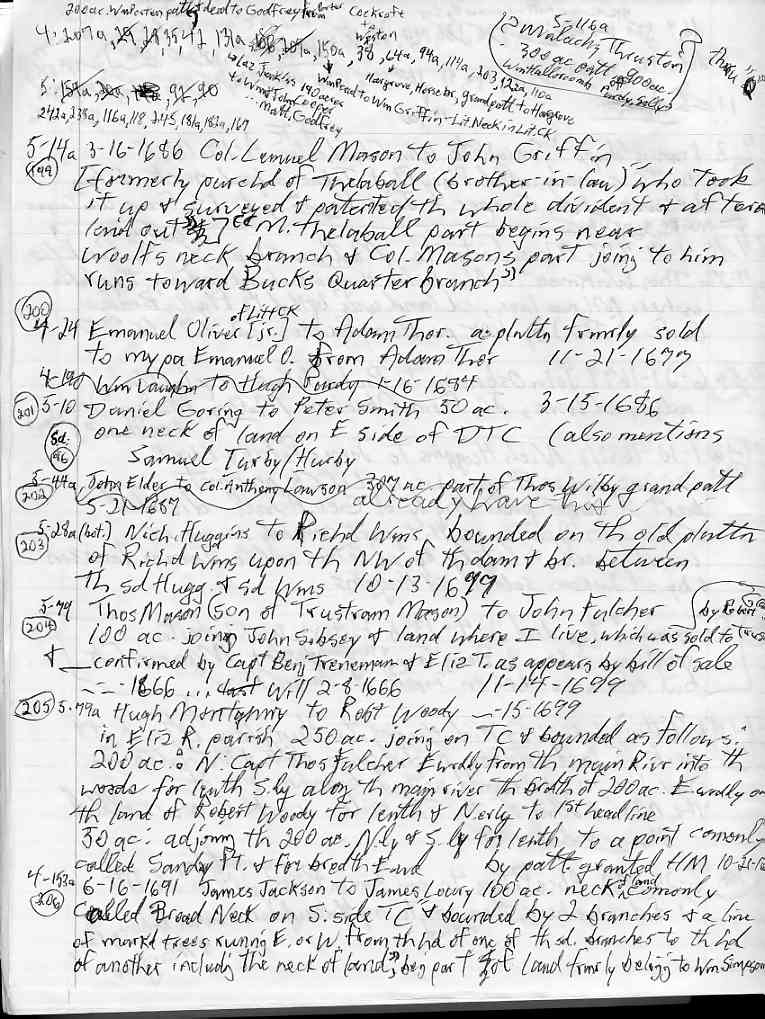 200 ac. Wm Porten patt & deed to Godfrey from Porter Cockroft
to Weston
4: 207a, 29, 28, 35, 42, 131a, 150a, 38, 64a, 94a, 114a, 203, 122a, 110a
5-116a
Malachy Thruston
300 ac patt 900 ac.
Wm Hallowah Purdy, Sally
5: 157a, 92, 90
to Wm & John Cooper
Matt, Godfrey
Wm Read to Wm Griffin-Lit. Neck in Lit. CK
Hargrove, Horse br, grand patt to Hargrove
242a, 238a, 116a, 118, 245, 181a, 183a, 167
5-14a 3-16-1686 Col. Lemuel Mason to John Griffin
199 [formerly purchd of Thelaball (brother-in-law) who took
it up & surveyed & patented th whole divident & after
laid out] "M. Thelaball part begins near
Woolfs neck branch & Col. Masons part joing to him
runs toward Bucks Quarter branch"
200 of Litt CK
4-24 Emanuel Oliver [jr.] to Adam Thor. a plttn frmrly sold
to my pa Emanuel O. from Adam Thor 11-21-1677
Wm Vaughn to Hugh Purdy 1-16-1684
201 5-10 Daniel Goring to Peter Smith 50 ac. 3-15-1686
one neck of land on E side of DTC (also mentions
Samuel Turby/Hurby
5-44a John Elder to Col. Anthony Lawson 307 ac part of Thos Wilby grand patt
202 5-21-1687 already have this
5-28a (bot.) Nich. Huggins to Richd Wms bounded on th old plttn
203 of Richd Wms upon th NW of th dam & br. between
th sd Hugg & sd Wms 10-13-1699
5-79 Thos Mason (son of Trustram Mason) to John Fulcher by Robert
204 100 ac. joing John Sibsey & land where I live, which was sold to Trus
& confirmed by Capt Benj Treneman & Eliz T. as appears by bill of sale
1666 ... last Will 2-8-1666 11-14-1699
205 5-79a Hugh Montgmry to Robt Woody -15-1699
in Eliz R. parish 250 ac. joing on TC & bounded as follows:
200 ac.: N: Capt Thos Fulcher Ewrdly from th main River into th
woods for lenth S.ly along th main river th bredth of 200 ac. Ewrdly on
th land of Robert Woody for lenth & Nerly to 1st head line
50 ac: adjoing th 200 ac. Nly & S.ly for lenth to a point comonly
called Sandy Pt. & for bredth Ewd by patt granted HM 10-21-16
4-153a 6-16-1691 James Jackson to James Lowry 100 ac. neck of land comonly
206 called Broad Neck on S. side TC & bounded by 2 branches & a line
of markd trees runing E. or W. from th hd of one of th sd. branches to th hd
of another includg the neck of land," beg part of land frmrly belogg to Wm Simpson